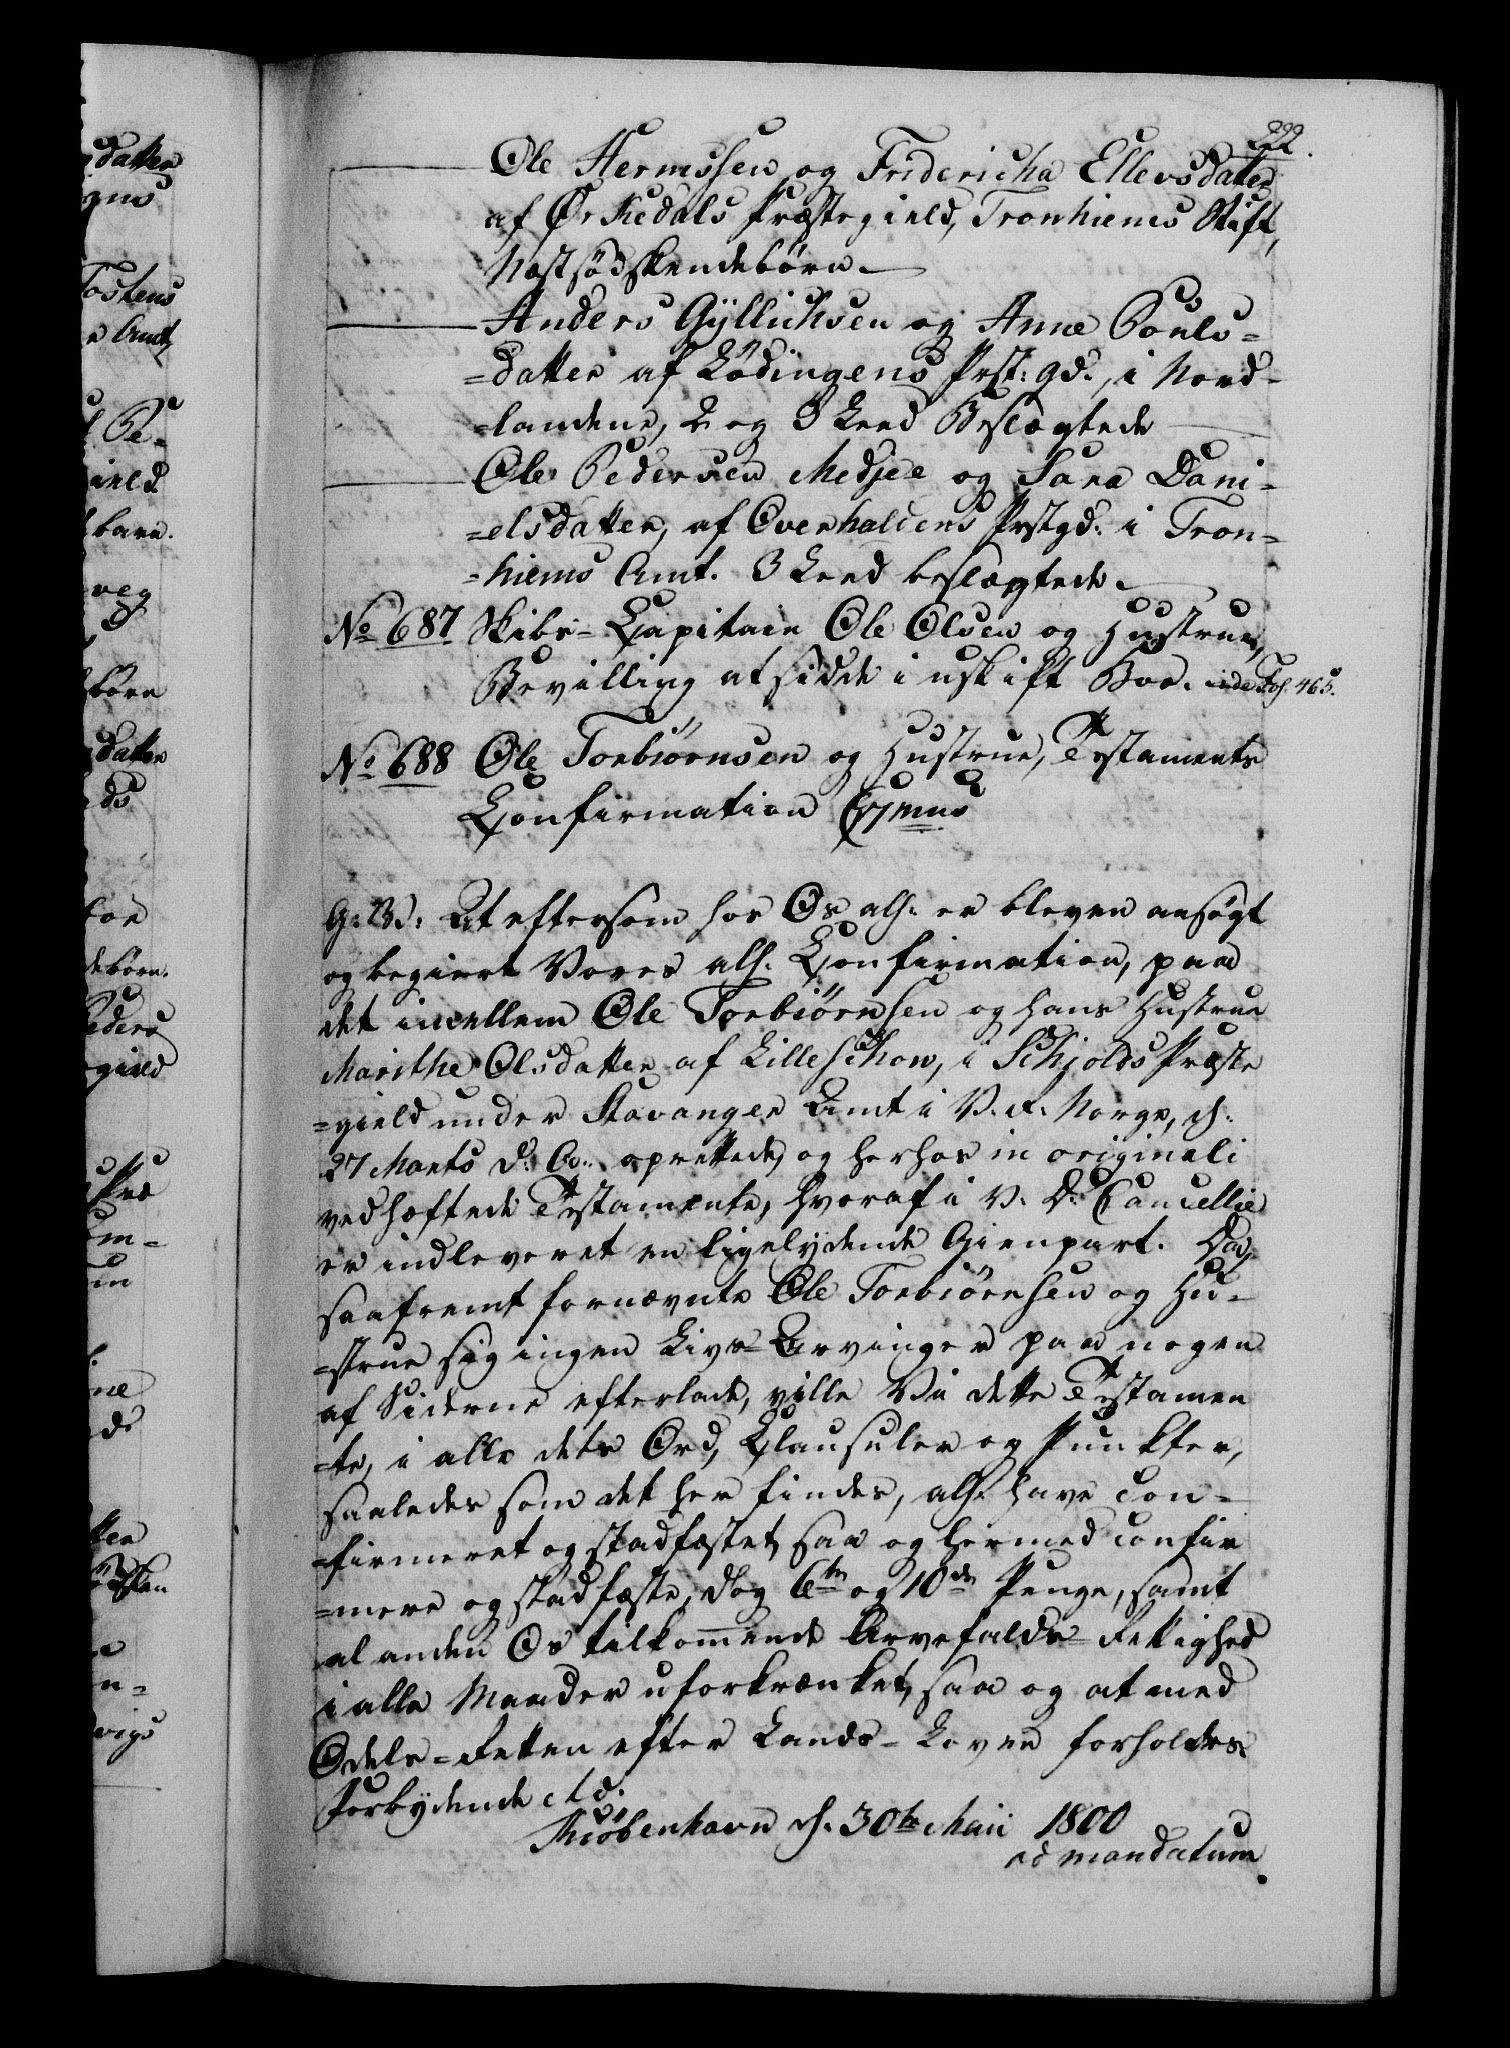 222.
Ole Hermssen og Fridericha Ellevsdatter
af Ørkedals Præstegield, Tronhiems Stift,
Næstsødskendebørn.
Anders Gÿllichsen og Anne Pouls=
=datter af Lødingens Prst: gd:, i Nord=
=landene, 2 og 3 Leed Beslægtede
Ole Pedersen Medjee og Sara Dani=
=elsdatter, af Overhaldens Prstgd: i Tron=
=hiems Amt. 3 Leed beslægtede.
No 687 Skibs=Capitain Ole Olsen og Hustrue,
Bevilling at sidde i uskift Boe. vide Fol. 465.
No 688 Ole Torbiørnsen og Hustrue, Testaments
Confirmation
G: V: At eftersom hos Os alh: er bleven ansøgt
og begiert Vores alh. Confirmation, paa
det imellem Ole Torbiörnsen og hans Hustrue
Marithe Olsdatter af Lilleschow, i Schjolds Præste
=gield under Stavanger Amt i V. R. Norge, d:
27 Marts d: A: oprettede, og herhos in originali
vedhæftede Testamente, hvoraf i V. D. Cancellie
er indleveret en ligelydende Gienpart. Da,
saafremt fornævnte Ole Torbiørnsen og Hu=
=strue sig ingen Livs=Arvinger paa nogen
af Siderne efterlade, ville Vi dette Testamen
=te, i alle dets Ord, Clausuler og Puncter,
saaledes som det her findes, alh: have con=
=firmeret og stadfæstet, saa og hermed confir
=mere og stadfæste, dog 6te og 10de Penge, samt
al anden Os tilkommende Arvefalds=Rettighed
i alle Maader uforkrænket, saa og at med
Odels=Retten efter Lands=Loven forholdes.
Forbydende etc.
Kiøbenhavn d. 30te Maii 1800
ad mandatum.